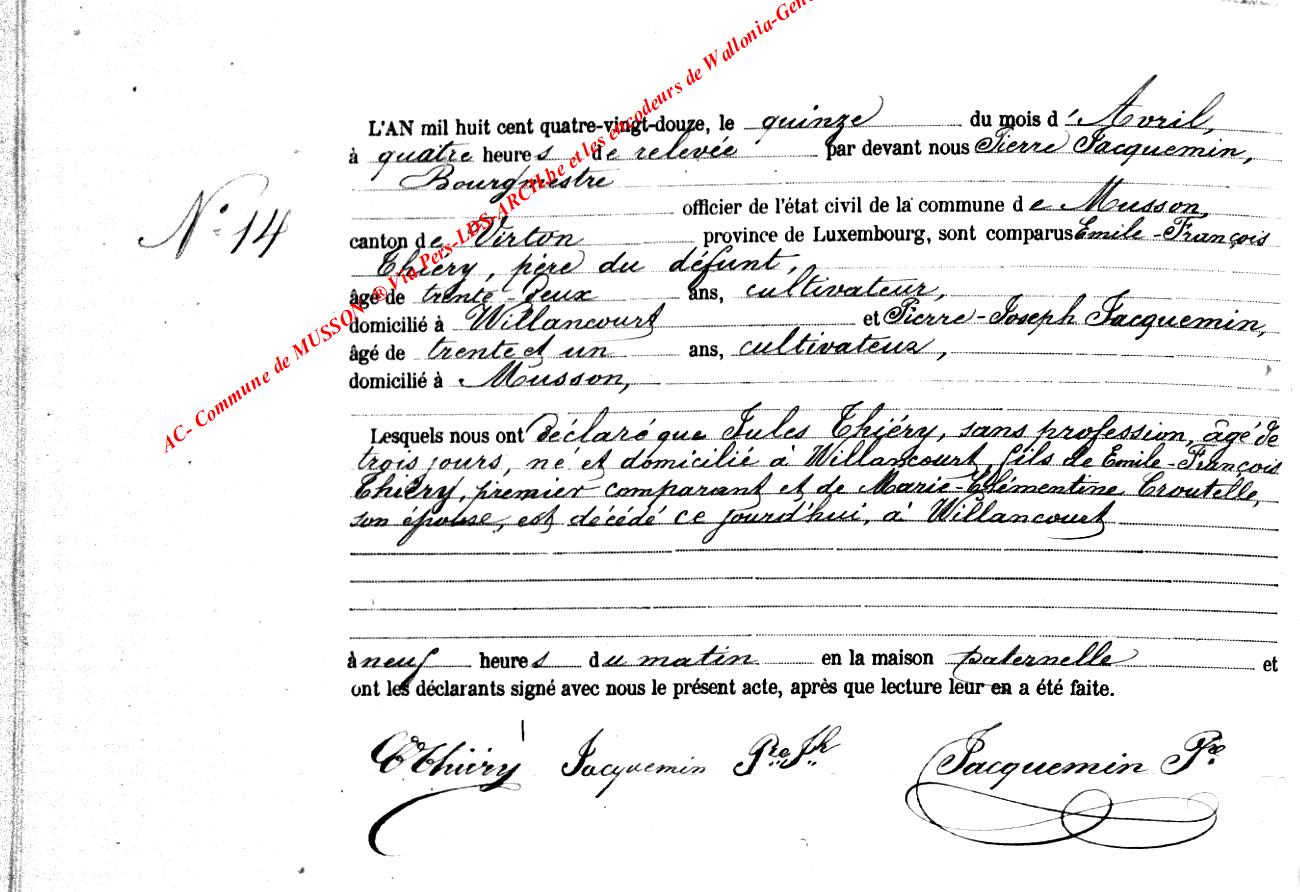 AC- Commune de MUSSON ® Via Pers-LDS-ARCH.be et les encodeurs de Wallonia-Gen
L'AN mil huit cent quatre-vingt-douze, le quinze du mois d'Avril,
à quatre heures de relevée par devant nous Pierre Jacquemin,
Bourgmestre
officier de l'état civil de la commune de Musson,
N° 14
canton de Virton province de Luxembourg, sont comparus Emile-François
Thiéry, père du défunt,
âgé de trente-deux ans, cultivateur,
domicilié à Willancourt et Pierre-Joseph Jacquemin,
âgé de trente et un ans, cultivateur,
domicilié à Musson,
Lesquels nous ont déclaré que Jules Thiéry, sans profession, âgé de
trois jours, né et domicilié à Willancourt, fils de Emile-François
Thiéry, premier comparant et de Marie-Clémentine Croutelle,
son épouse, est décédé ce jourd'hui, à Willancourt
à neuf heures du matin en la maison paternelle et
ont les déclarants signé avec nous le présent acte, après que lecture leur en a été faite.
E Thiéry Jacquemin Pre Jh Jacquemin Pre